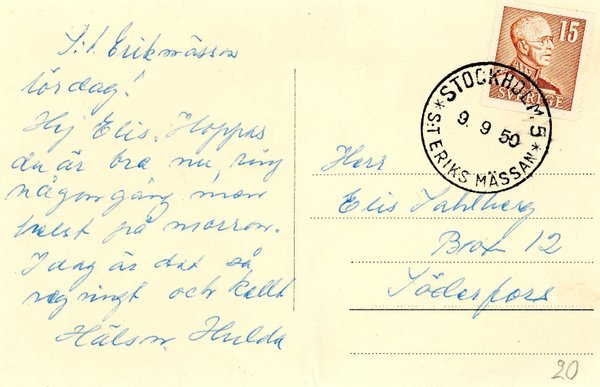 S:t Erikmässan
lördag!
Hej Elis. Hoppas
du är bra nu, ring
någon gång, men
helst på morron.
I dag är det så
regnigt och kallt
Hälsn. Hulda
15
SVERIGE
STOCKHOLM 5
9. 9 50
* S:T ERIKS MÄSSAN *
Herr
Elis Sahlberg
Box 12
Söderfors
20